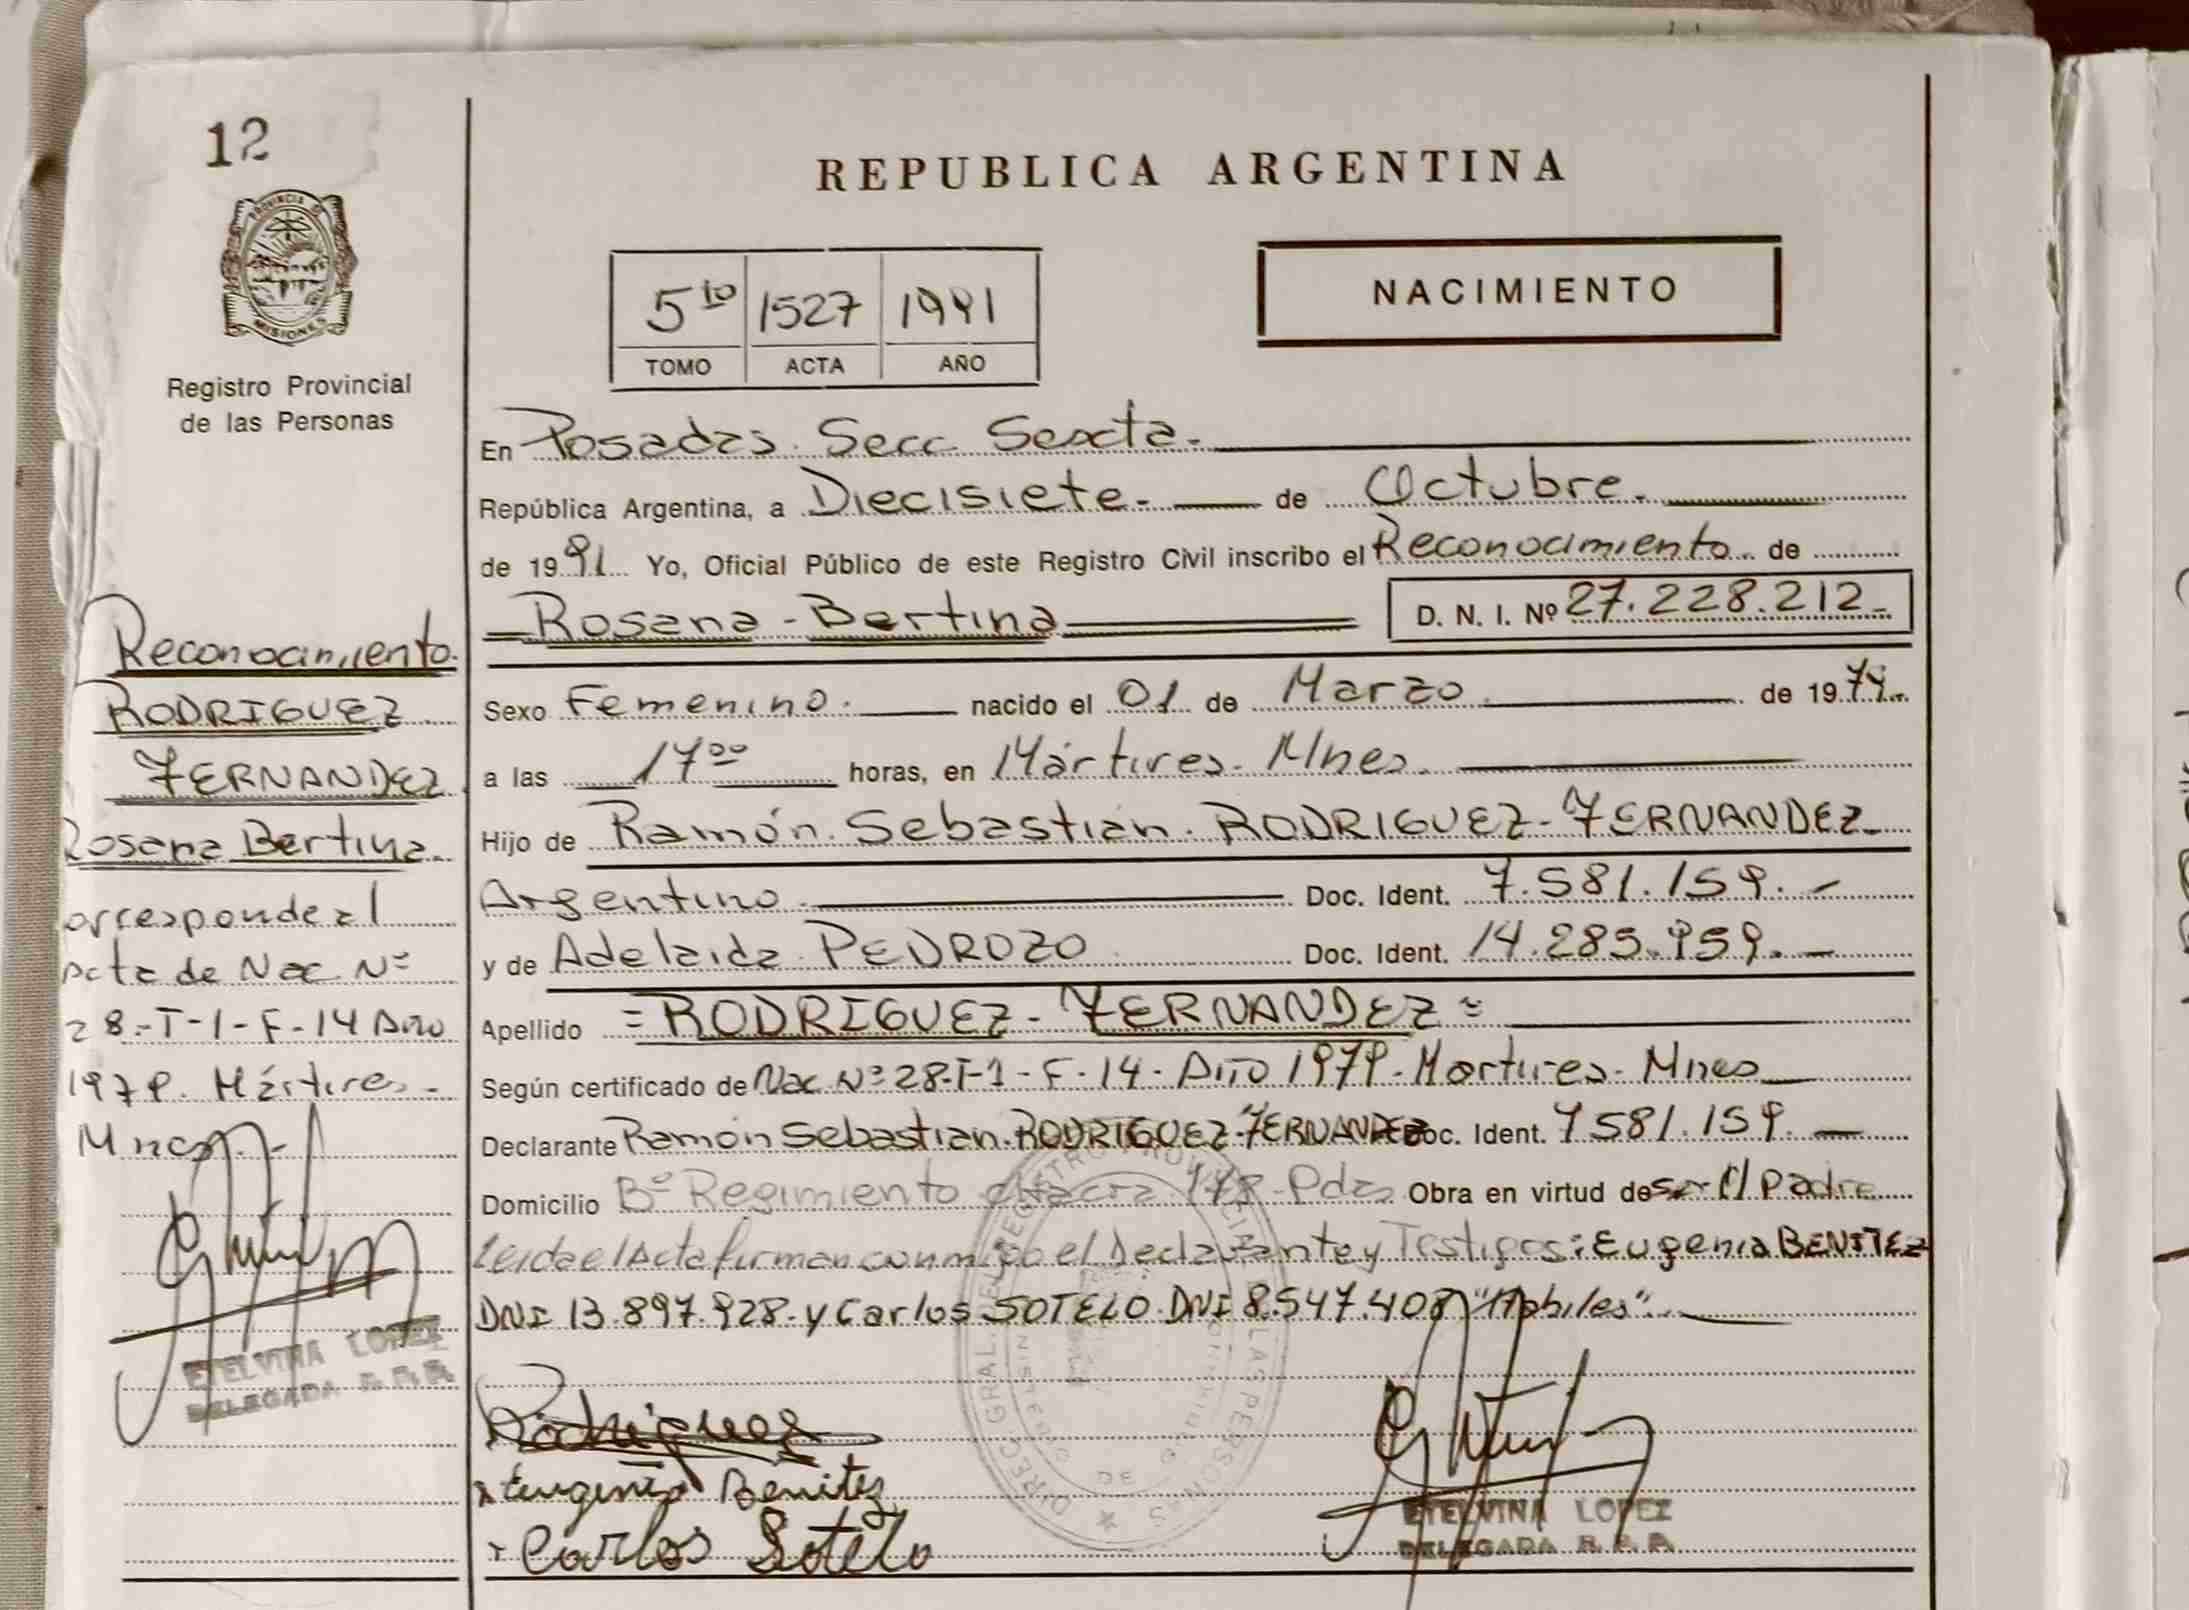 12
PROVINCIA DE
MISIONES
Registro Provincial
de las Personas
Reconocimiento.
RODRIGUEZ
FERNANDEZ
Rosana Bertina
orresponde al
acta de Nac. Nº
28.-T-1-F-14 Año
1979. Mártires-
Mnes.
ETELVINA LOPEZ
DELEGADA R.P.P.
REPUBLICA ARGENTINA
5to 1527 1991
TOMO ACTA AÑO
NACIMIENTO
En Posadas. Secc. Sexta.
República Argentina, a Diecisiete. de Octubre.
de 1991 Yo, Oficial Público de este Registro Civil inscribo el Reconocimiento de
Rosana - Bertina D. N. I. Nº 27.228.212
Sexo Femenino. nacido el 01 de Marzo. de 1979.
a las 17ºº horas, en Mártires. Mnes.
Hijo de Ramón. Sebastián. RODRIGUEZ-FERNANDEZ
Argentino. Doc. Ident. 7.581.159.
y de Adelaida PEDROZO Doc. Ident. 14.285.959.
Apellido =RODRIGUEZ- FERNANDEZ=
Según certificado de Nac Nº 28-T-1-F-14- Año 1979. Martires. Mnes
Declarante Ramón Sebastian. RODRIGUEZ-FERNANDEZ Doc. Ident. 7581.159.
Domicilio Bº Regimiento chacra Pdas Obra en virtud de ser el padre
Leida el Acta firman conmigo el Declarante y Testigos: Eugenia BENITEZ
DNI 13.897.928. y Carlos SOTELO. DNI 8.547.408 "Habiles".
Rodriguez
Eugenia Benitez
Carlos Sotelo
DIREC. GRAL. DEL REGISTRO PROVINCIAL DE LAS PERSONAS
ETELVINA LOPEZ
DELEGADA R.P.P.